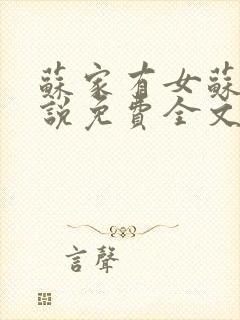 蘇家有女蘇
說免費全文
言聲